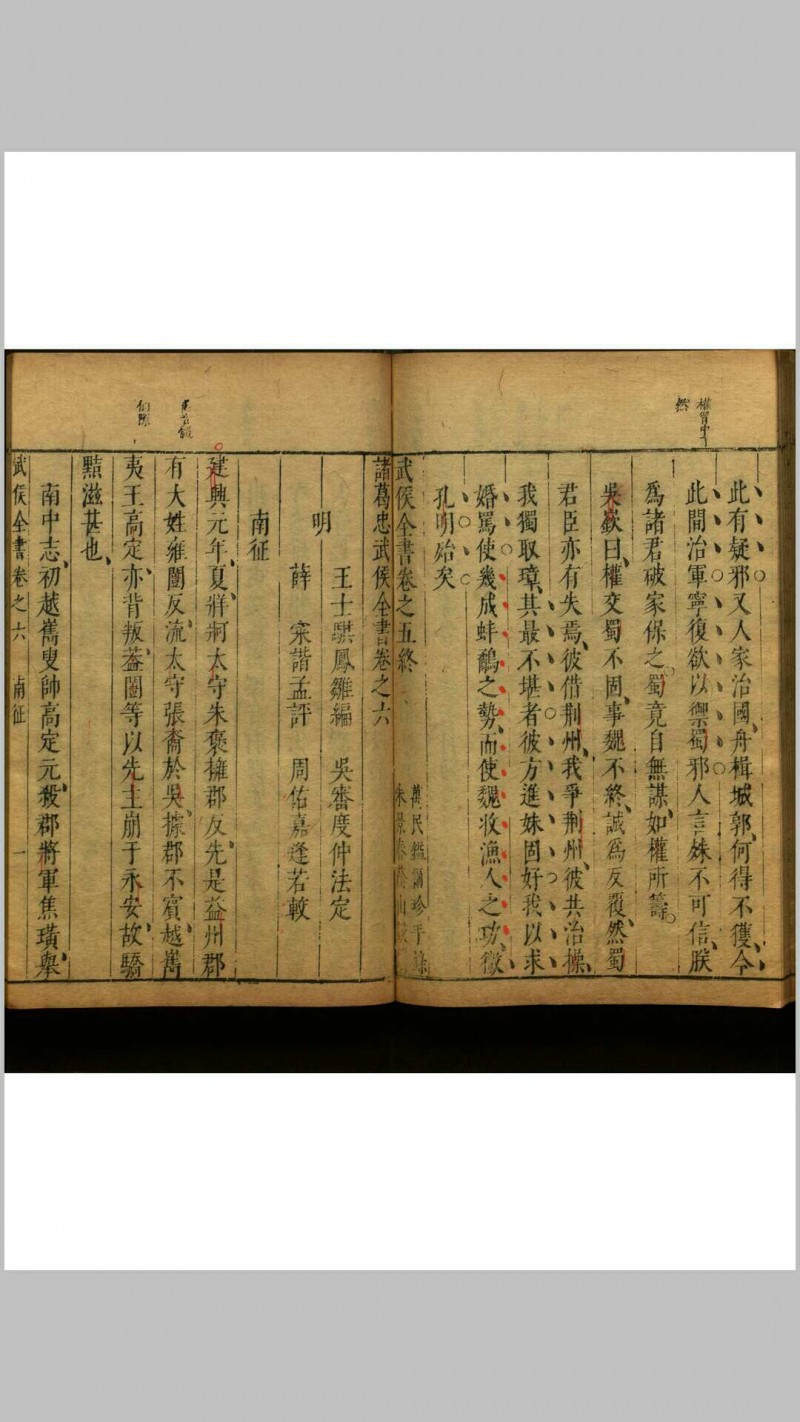 權習中
然
此有疑邪又人家治國舟楫城郭何得不獲今
此間治軍寧復欲以禦蜀邪人言姝不可信朕
爲諸君破家保之蜀竟自無謀如權所籌
吳嶔曰權交蜀不固事魏不終誠爲反覆然蜀
君臣亦有失焉彼借荆州我爭荆州彼共治操
我獨取璋其最不堪者彼方進妹固好我以求
婚罵使幾成蚌鷸之勢而使魏收漁人之功微
孔明始矣
武侯全書卷之五終
萬民鑑
諸葛忠武侯全書卷之六
明
王士騏鳳雛編 吳審度仲法定
薛寀諧孟評 周佑嘉逢若較
南征
建興元年夏牂牁太守朱褒擁郡反先是益州郡
有大姓雍闓反流太守張裔於吳據郡不賓越嶲
夷王高定亦背叛葢闓等以先主崩于永安故驕
黠滋甚也
南中志初越嶲叟帥高定元殺郡將軍焦璜舉
武侯全書 卷之六 南征 一